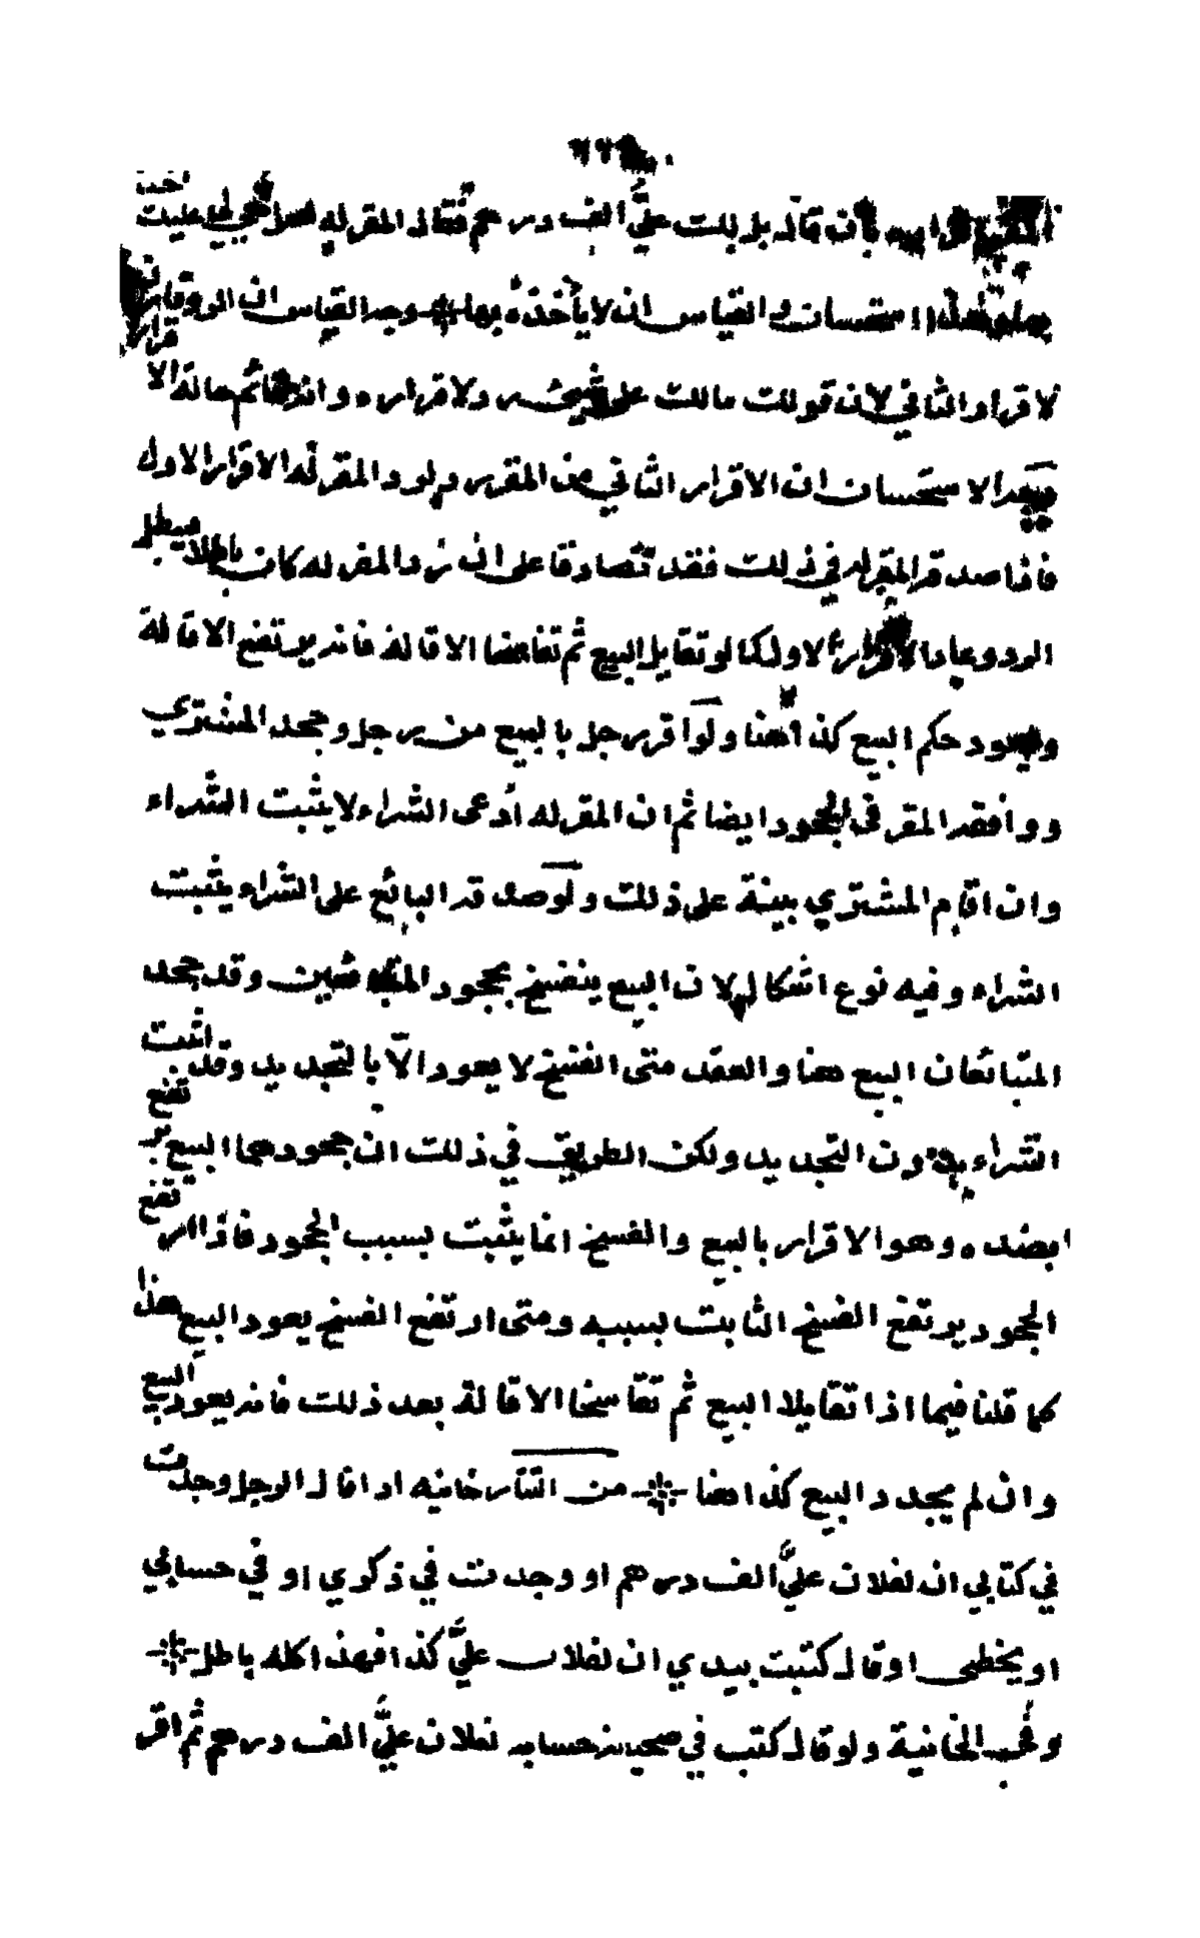 بان قال بل لك علي الف درهم فقال المقر له لي عليك
استحسان والقياس ان لا يأخذه بها وجه القياس ان
لاقرار الثاني لان قولك مالك على ولا قراره وانه قائم حالة الا
الاستحسان ان الاقرار الثاني من المقر رد لرد المقر له الاقرار الاول
فاذا صدقه المقر له في ذلك فقد تصادقا على ان رد المقر له كان باطلا فيبطل
الرد وعاد الاقرار الاول كما لو تقايلا البيع ثم تفاسخا الاقالة فانه يرتفع الاقالة
ويعود حكم البيع كذا هنا ولو اقر رجل بالبيع من رجل وجحد المشتري
ووافقه المقر في الجحود ايضا ثم ان المقر له أدعى الشراء لا يثبت الشراء
وان اقام المشتري بينة على ذلك ولو صدقه البائع على الشراء يثبت
الشراء وفيه نوع اشكال لان البيع ينفسخ بجحود وقد جحد
المتبائعان البيع هنا والعقد متى انفسخ لا يعود الا بالتجديد وقد اثبت
الشراء بدون التجديد ولكن الطريق في ذلك ان جحودهما البيع يرتفع
بضده وهو الاقرار بالبيع والفسخ انما يثبت بسبب الجحود فاذا ارتفع
الجحود يرتفع الفسخ الثابت بسببه ومتى ارتفع الفسخ يعود البيع هذا
كما قلنا فيما اذا تقايلا البيع ثم تفاسخا الاقالة بعد ذلك فانه يعود البيع
وان لم يجدد البيع كذا هنا من التتارخانيه اذا قال الرجل وجدت
في كتابي ان لفلان علي الف درهم او وجدت في ذكري او في حسابي
او بخطي او قال كتبت بيدي ان لفلان علي كذا فهذا كله باطل
وفي الخانية ولو قال كتب في صحيفة حسابه لفلان علي الف درهم ثم اقر